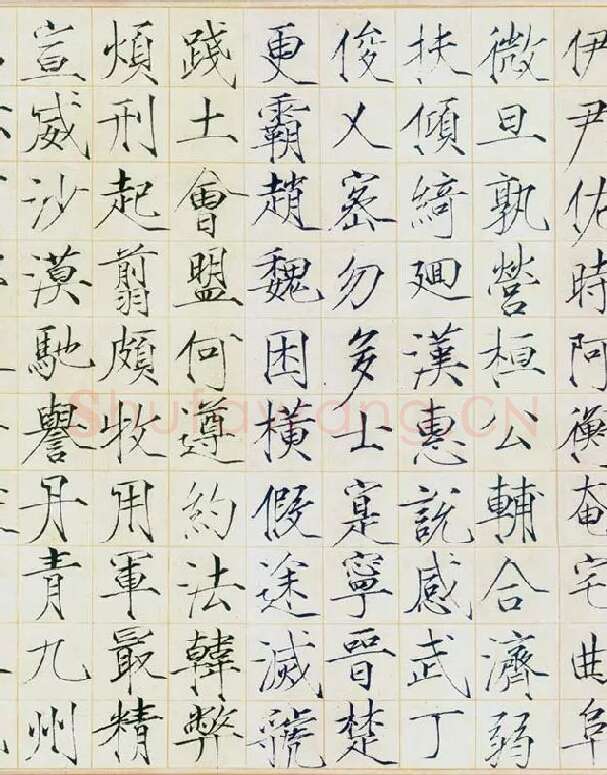 伊尹佐時阿衡奄宅曲阜
微旦孰營桓公輔合濟弱
扶傾綺迴漢惠說感武丁
俊乂密勿多士寔寧晉楚
更霸趙魏困橫假途滅虢
踐土會盟何遵約法韓弊
煩刑起翦頗牧用軍最精
宣威沙漠馳譽丹青九州
Shufawang.CN